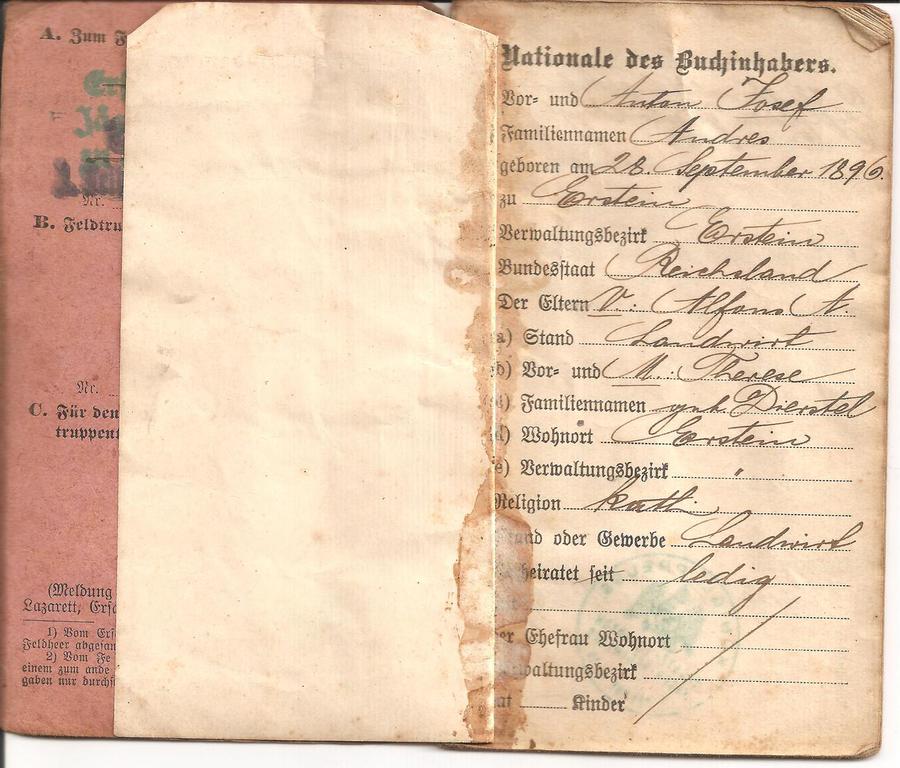 A. Zum F
Nr.
B. Feldtru
Nr.
C. Für den
truppent
(Meldung
Lazarett, Ersa
1) Vom Ers
Feldheer abgesan
2) Vom Fe
einem zum ande
gaben nur durchs
Nationale des Buchinhabers.
Vor- und Anton Josef
Familiennamen Andres
geboren am 28. September 1896.
zu Erstein
Verwaltungsbezirk Erstein
Bundesstaat Reichsland
Der Eltern V. Alfons A.
a) Stand Landwirt
b) Vor- und M. Therese
Familiennamen geb. Dierstel
d) Wohnort Erstein
e) Verwaltungsbezirk "
Religion kath.
tand oder Gewerbe Landwirt
heiratet seit ledig
er Ehefrau Wohnort
waltungsbezirk
at Kinder